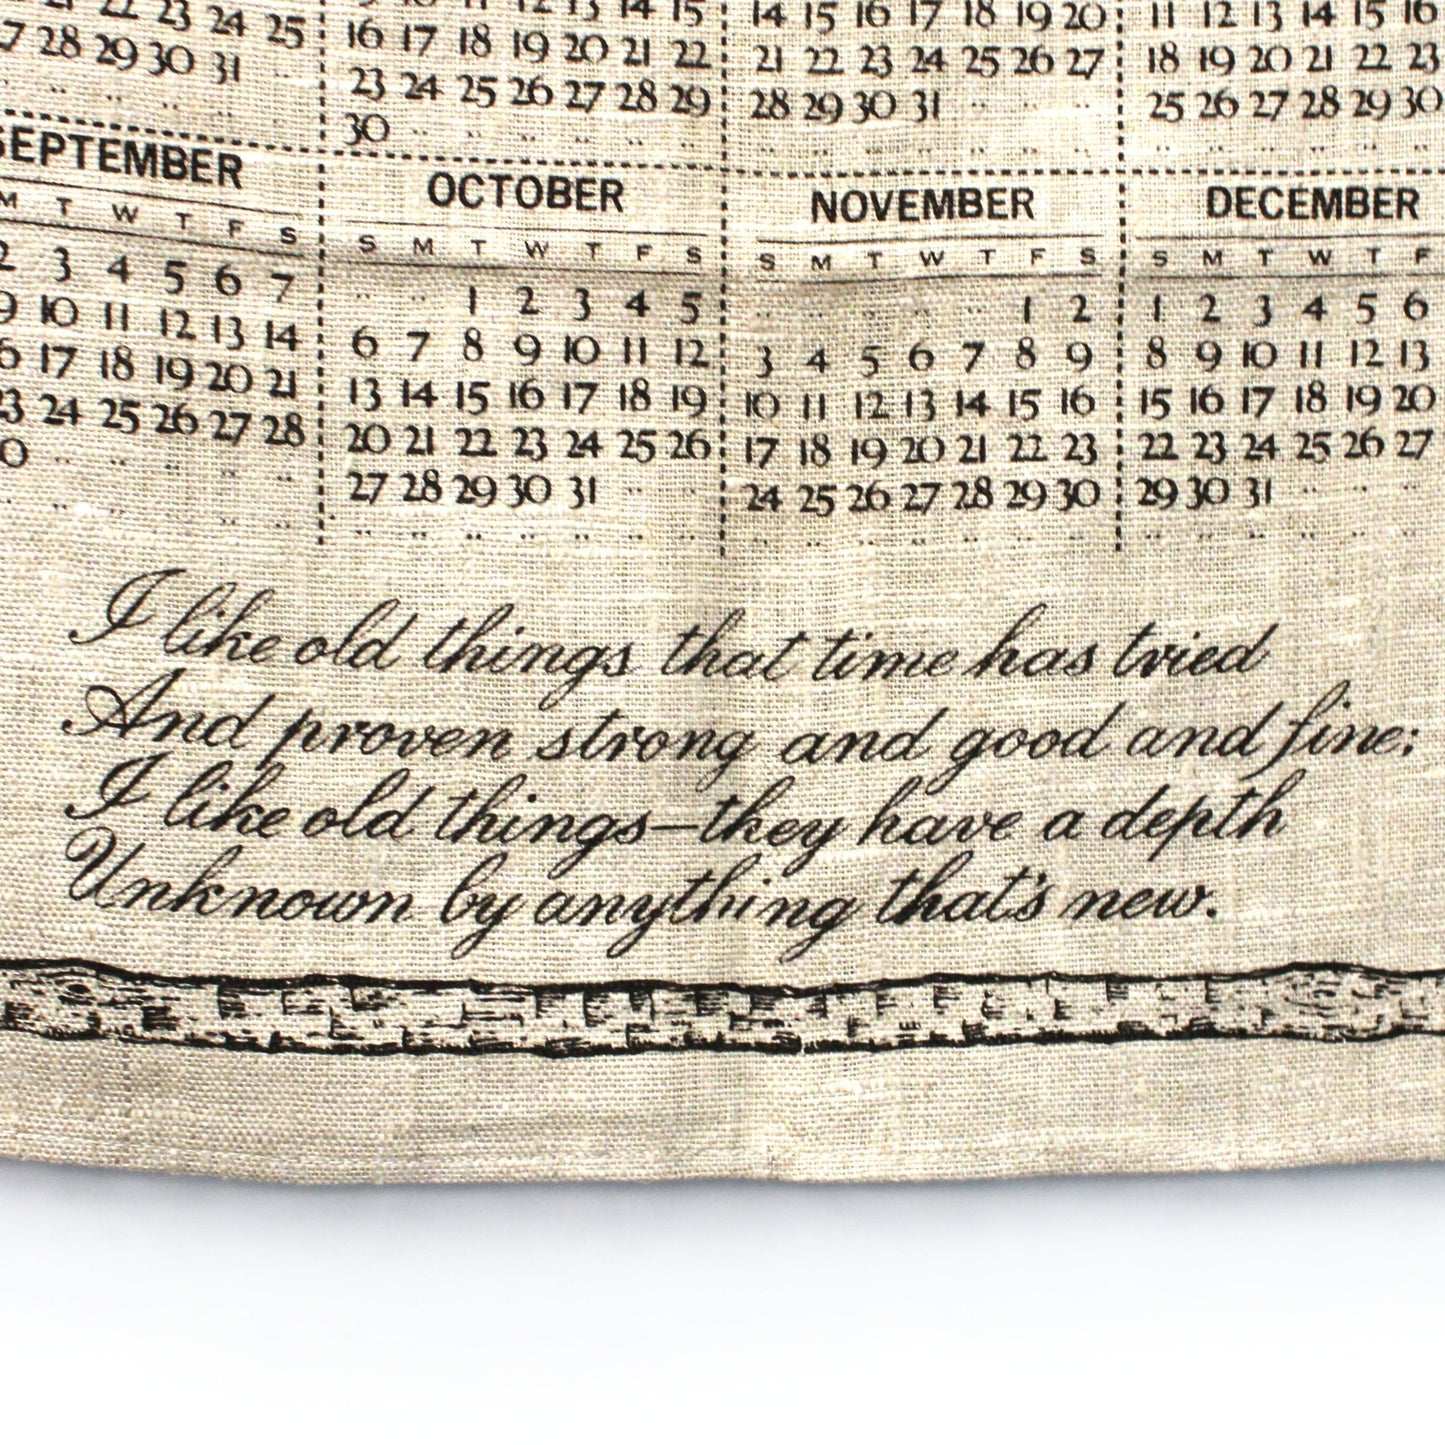 22 23 24 25
28 29 30 31
14 15
16 17 18 19 20 21 22
23 24 25 26 27 28 29
30
14 15 16 17 18 19 20
21 22 23 24 25 26 27
28 29 30 31
11 12 13 14 15 16
18 19 20 21 22 23
25 26 27 28 29 30
SEPTEMBER
M T W T F S
2 3 4 5 6 7
9 10 11 12 13 14
17 18 19 20 21
23 24 25 26 27 28
OCTOBER
S M T W T F S
1 2 3 4 5
6 7 8 9 10 11 12
13 14 15 16 17 18 19
20 21 22 23 24 25 26
27 28 29 30 31
NOVEMBER
S M T W T F S
1 2
3 4 5 6 7 8 9
10 11 12 13 14 15 16
17 18 19 20 21 22 23
24 25 26 27 28 29 30
DECEMBER
S M T W T F
1 2 3 4 5 6
8 9 10 11 12 13
15 16 17 18 19 20
22 23 24 25 26 27
29 30 31
I like old things that time has tried
And proven strong and good and fine;
I like old things—they have a depth
Unknown by anything that's new.